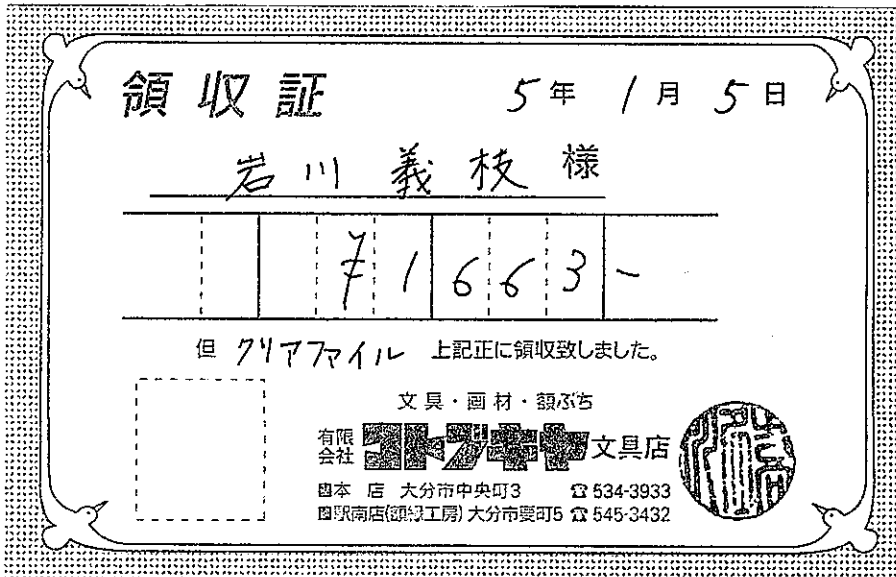 領収証 5年 1月 5日
岩川 義枝 様
¥1663-
但 クリアファイル 上記正に領収致しました。
文具・画材・額ぶち
有限会社 コトブキヤ 文具店
本店 大分市中央町3 ☎534-3933
駅南店(額縁工房) 大分市要町5 ☎545-3432